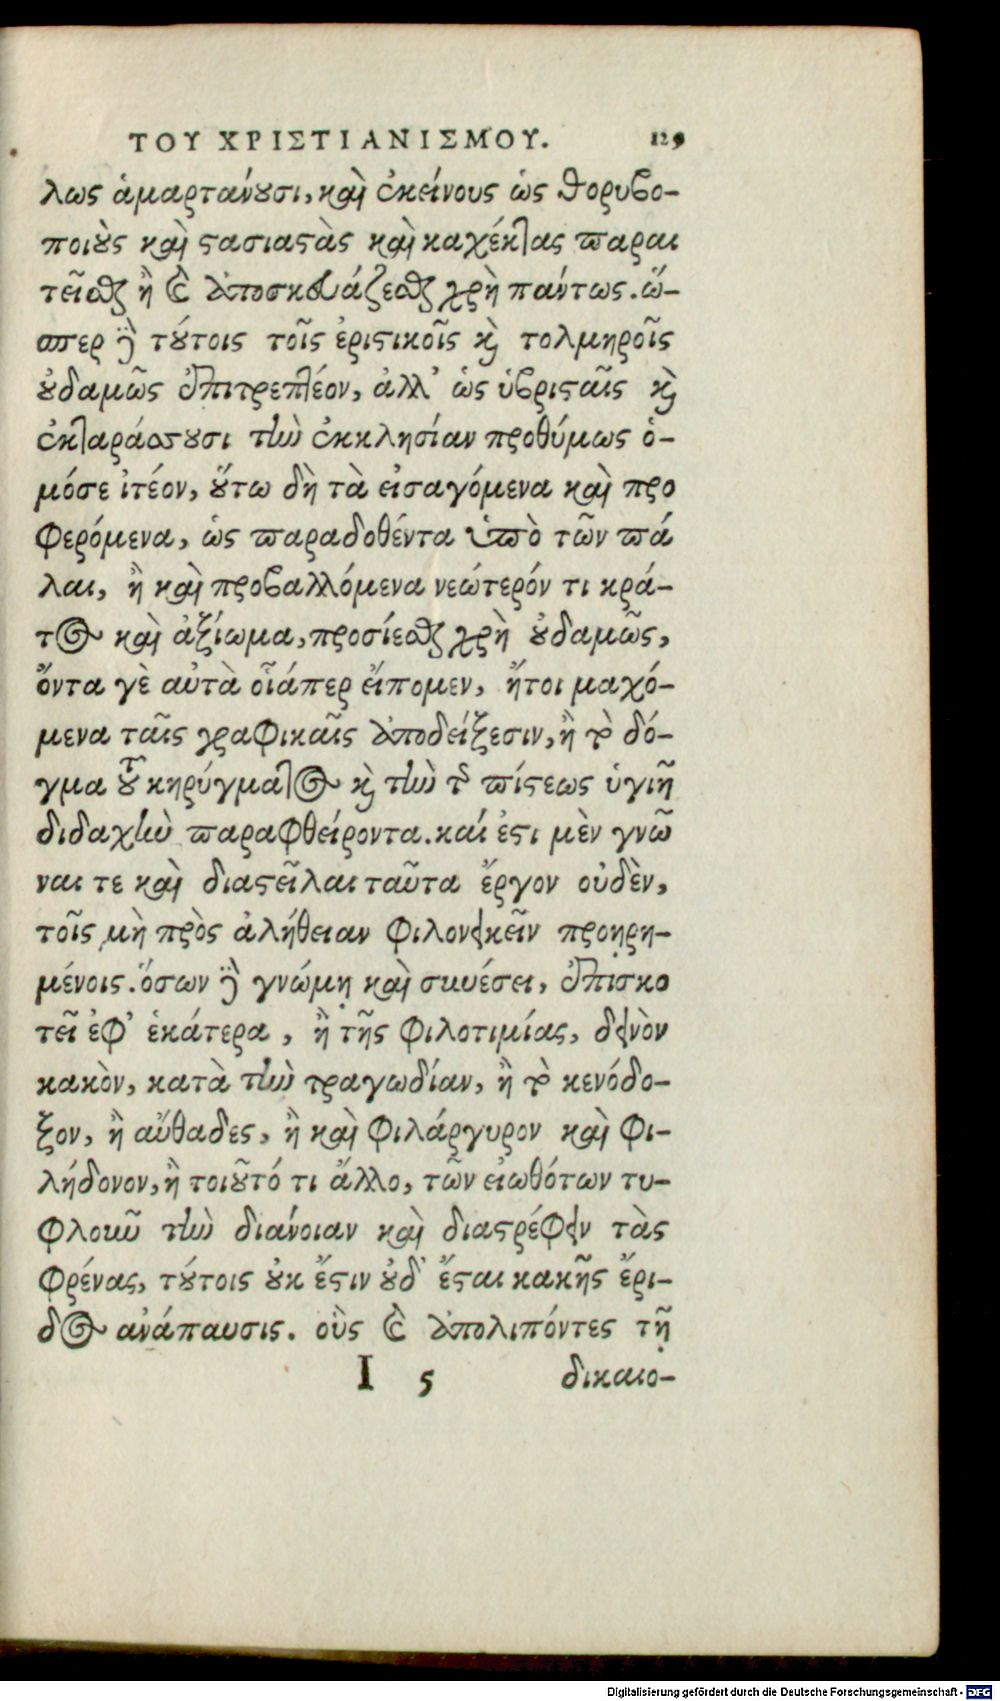 ΤΟΥ ΧΡΙΣΤΙΑΝΙΣΜΟΥ. 129
λως ἁμαρτάνουσι, καὶ ἐκείνους ὡς θορυβο-
ποιοὺς καὶ στασιαστὰς καὶ καχέκτας παραι
τεῖσθαι ἢ καὶ ἀποσκυβαλίζεσθαι χρὴ πάντως. ὥ-
σπερ δὲ τούτοις τοῖς ἐριστικοῖς καὶ τολμηροῖς
οὐδαμῶς ἐπιτρεπτέον, ἀλλ' ὡς ὑβρισταῖς καὶ
ἐκταράσσουσι τὴν ἐκκλησίαν προθύμως ὁ-
μόσε ἰτέον, οὕτω δὴ τὰ εἰσαγόμενα καὶ προ
φερόμενα, ὡς παραδοθέντα ὑπὸ τῶν πά
λαι, ἢ καὶ προβαλλόμενα νεώτερόν τι κρά-
τος καὶ ἀξίωμα, προσίεσθαι χρὴ οὐδαμῶς,
ὄντα γὲ αὐτὰ οἷάπερ εἴπομεν, ἤτοι μαχό-
μενα ταῖς γραφικαῖς ἀποδείξεσιν, ἢ τὸ δό-
γμα τοῦ κηρύγματος καὶ τὴν τῆς πίστεως ὑγιῆ
διδαχὴν παραφθείροντα. καί ἐστι μὲν γνῶ
ναι τε καὶ διαστεῖλαι ταῦτα ἔργον οὐδὲν,
τοῖς μὴ πρὸς ἀλήθειαν φιλονεικεῖν προῃρη-
μένοις. ὅσων δὲ γνώμῃ καὶ συνέσει, ἐπισκο
τεῖ ἐφ' ἑκάτερα, ἢ τῆς φιλοτιμίας, δεινὸν
κακὸν, κατὰ τὴν τραγωδίαν, ἢ τὸ κενόδο-
ξον, ἢ αὔθαδες, ἢ καὶ φιλάργυρον καὶ φι-
λήδονον, ἢ τοιοῦτό τι ἄλλο, τῶν εἰωθότων τυ-
φλοῦν τὴν διάνοιαν καὶ διαστρέφειν τὰς
φρένας, τούτοις οὐκ ἔστιν οὐδ' ἔσται κακῆς ἔρι-
δος ἀνάπαυσις. οὓς καὶ ἀπολιπόντες τῇ
I 5 δικαιο-
Digitalisierung gefördert durch die Deutsche Forschungsgemeinschaft - DFG